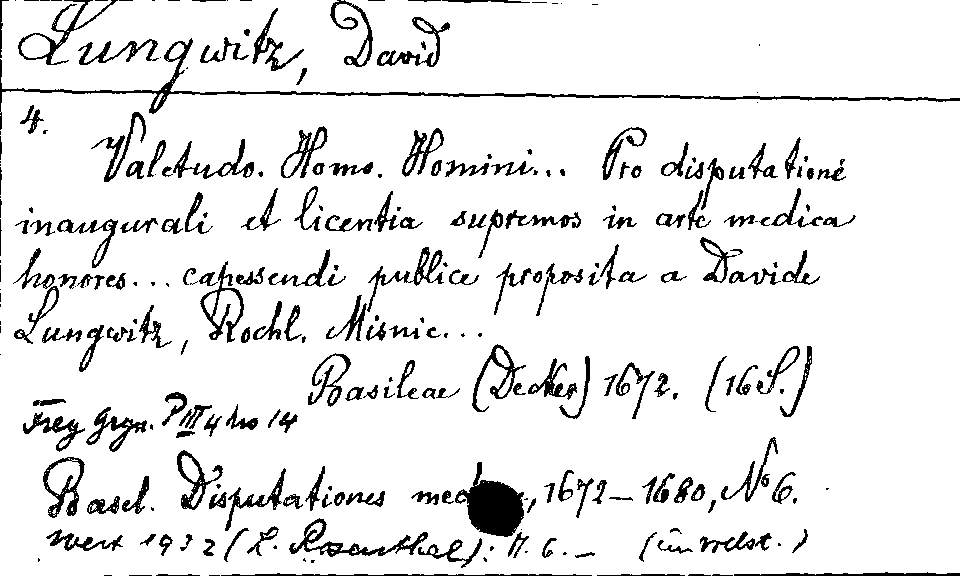 Lungwitz, David
4.
Valetudo. Homo. Homini... Pro disputatione
inaugurali et licentia supremos in arte medica
honores... capessendi publice proposita a Davide
Lungwitz, Rochl. Misnic...
Basileae (Decker) 1672. (16 S.)
Frey Gryn. P III 4 No 14
Basel. Disputationes, 1672-1680, No 6.
Wert 1932 (L. Rosenthal): M. 6.-